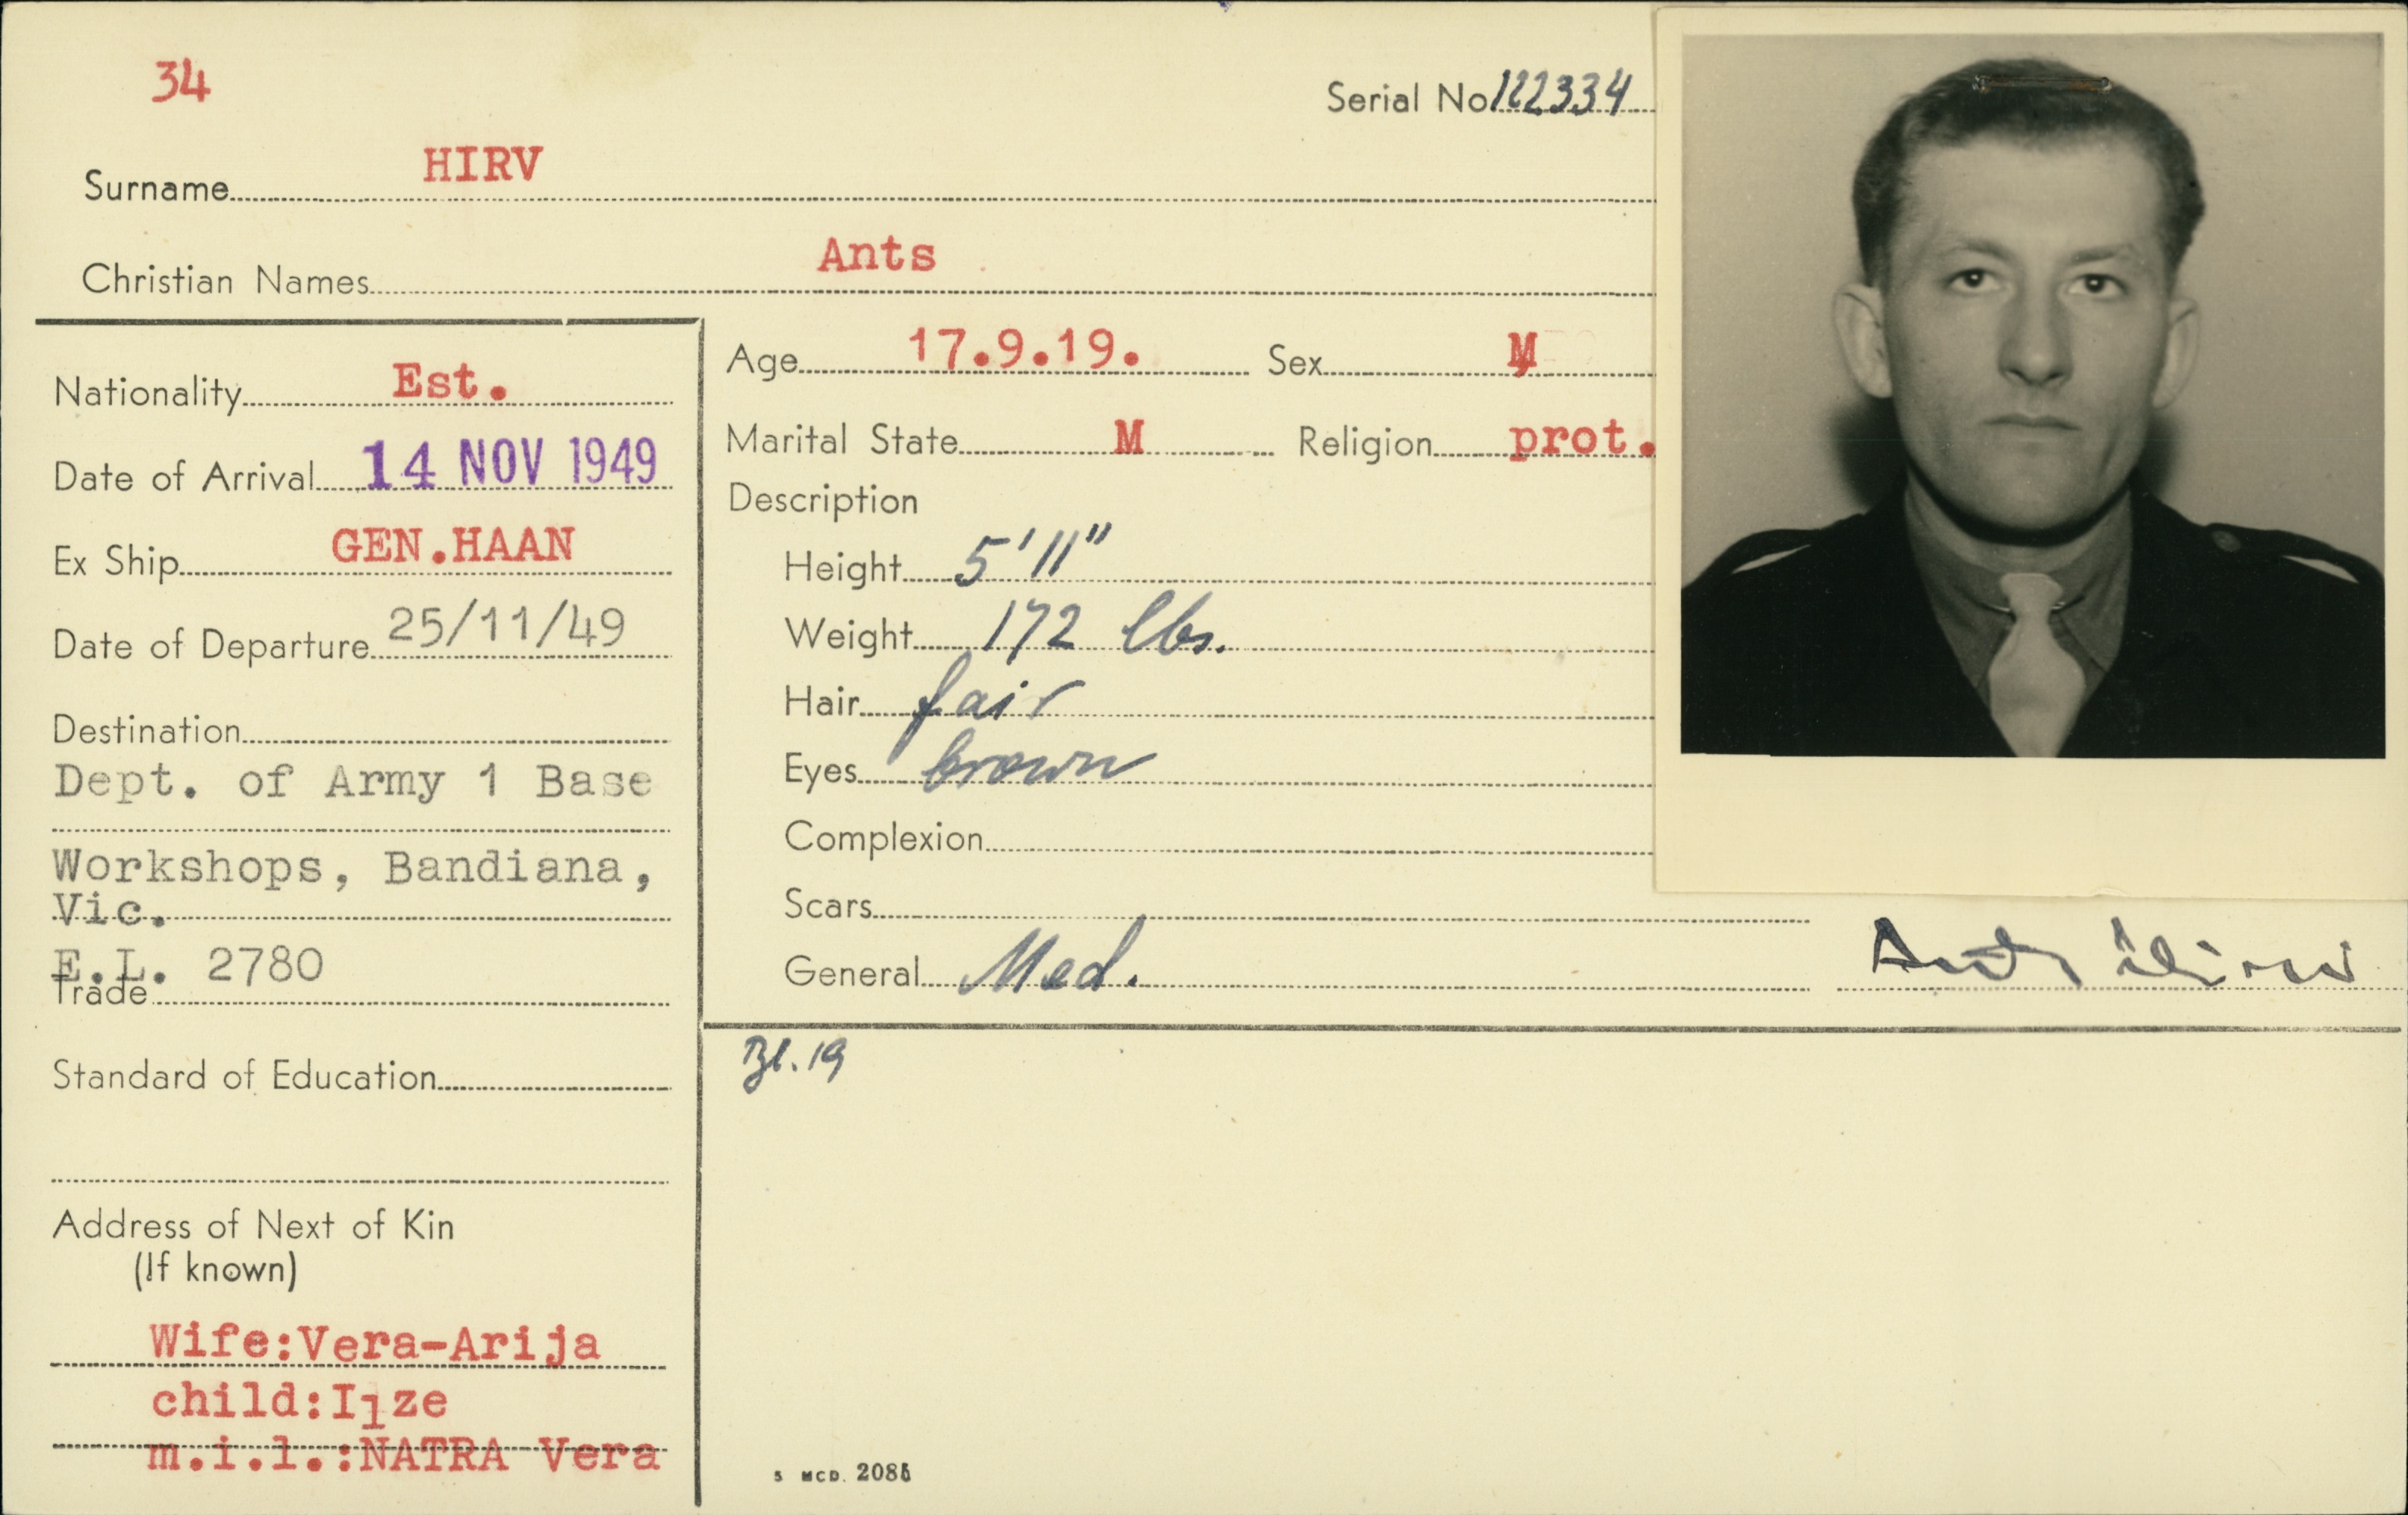 34
Serial No 122334
Surname HIRV
Christian Names Ants
Nationality Est.
Date of Arrival 14 NOV 1949
Ex Ship GEN.HAAN
Date of Departure 25/11/49
Destination
Dept. of Army 1 Base
Workshops, Bandiana,
Vic.
E.L. 2780
Trade
Standard of Education
Address of Next of Kin
(If known)
Wife:Vera-Arija
child:Ilze
m.i.l.:NATRA Vera
Age 17.9.19. Sex M
Marital State M Religion prot.
Description
Height 5'11"
Weight 172 lbs.
Hair fair
Eyes brown
Complexion
Scars
General Med.
Ants Hirv
Bl. 19
5 MCD. 2085